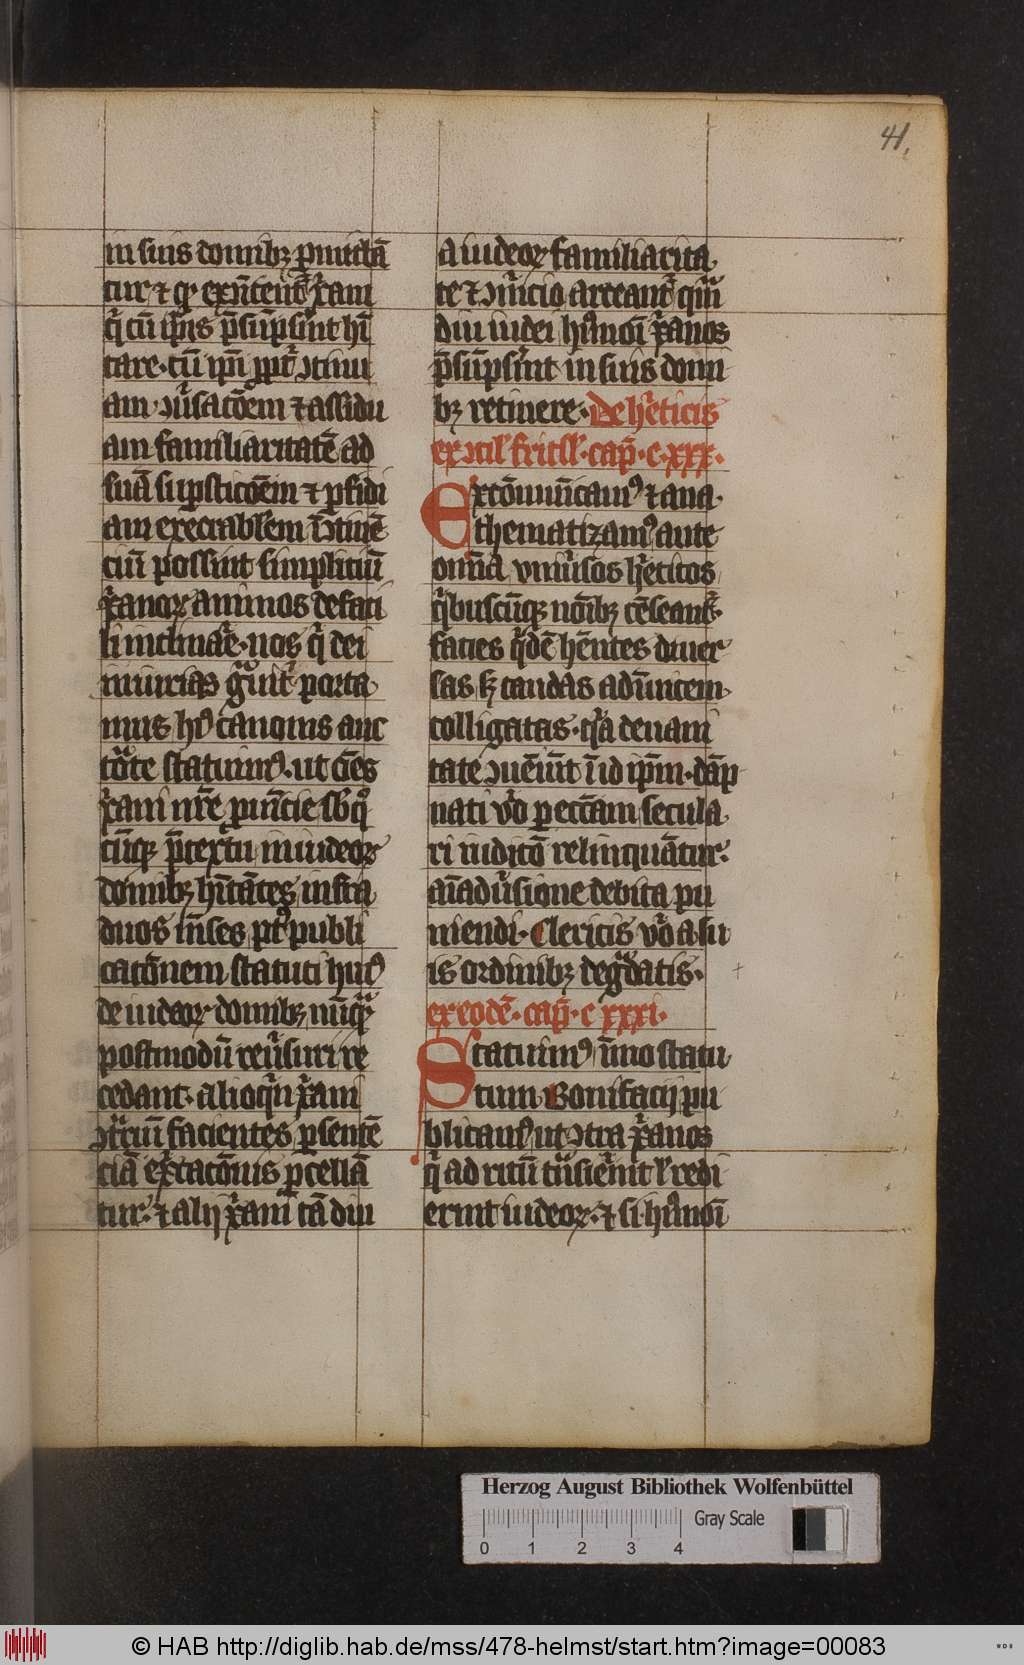 41.
in suis domibꝫ ꝑmittā
tur ⁊ qꝛ
qͥ cū ip̄is p̄sūpsͬint hı̄
tare · cū ip̄i ꝓpt̾ ꝯtinu
am ꝯu̾sacōem ⁊ assidu
am familiaritatē ad
suā suꝑsticōem ⁊ ꝑfidi
am execrabl̾em
ciū possint simpliciū
xͬanoꝝ animos de faci
li inclinar̄e · nos qͥ dei
iniurias gͣuit̾ porta
mus hͦ canonis auc
tōͬte statuimꝰ · ut om̄es
xͬani nr̄e ꝓuı̄cie sb̾ qͦ
cūqꝫ p̄textu in iudeoꝝ
domibꝫ hı̄tātes infra
duos m̄ses pꝰt publi
catōnem statuti huiꝰ
de iudeoꝝ domibꝫ nūqͣꝫ
postmodū reu̾suri re
cedant · alioqͥn xͬani
ꝯtͬriū facientes ꝑ sentē
ciā exͨtacōnis ꝑcellā
tur · ⁊ alij xͬani tā diu
a iudeoꝝ familiarita
te ⁊ ꝯm̾cio arceant̾ qͣm
diu iudei hꝰmōi xͬanos
p̄sūpsͬint in suis domi
bꝫ retinere · De hͬeticis
ex ꝯcil̾ fritsl̾ · cap̄ · c · xxx ·
Excōmunicamꝰ ⁊ ana
thematizamꝰ ante
om̄ia vniu̾sos hͬeticos
qͥbuscūqꝫ noı̄bꝫ cēseant̾
facies qͥdē hn̄tes diuer
sas sꝫ caudas adı̄uicem
colligatas · qͥa de uani
tate ꝯueniūt ī id ip̄m · dāp
nati v̾o ꝑ eccām secula
ri iudicō relinquātur ·
aı̄adu̾sione debita pu
niendi · Clericis v̾o a su
is ordinibꝫ degͣdatis ·
ex eodē · cap̄ · c xxxi ·
Statuimꝰ ı̄mo statu
tum Bonifacij pu
blicamꝰ ut ꝯtra xͬanos
qͥ ad ritū tͣnsierīnt ul̾ redi
erint iudeoꝝ · ⁊ si hꝰmōi
Herzog August Bibliothek Wolfenbüttel
0 1 2 3 4
Gray Scale
© HAB http://diglib.hab.de/mss/478-helmst/start.htm?image=00083